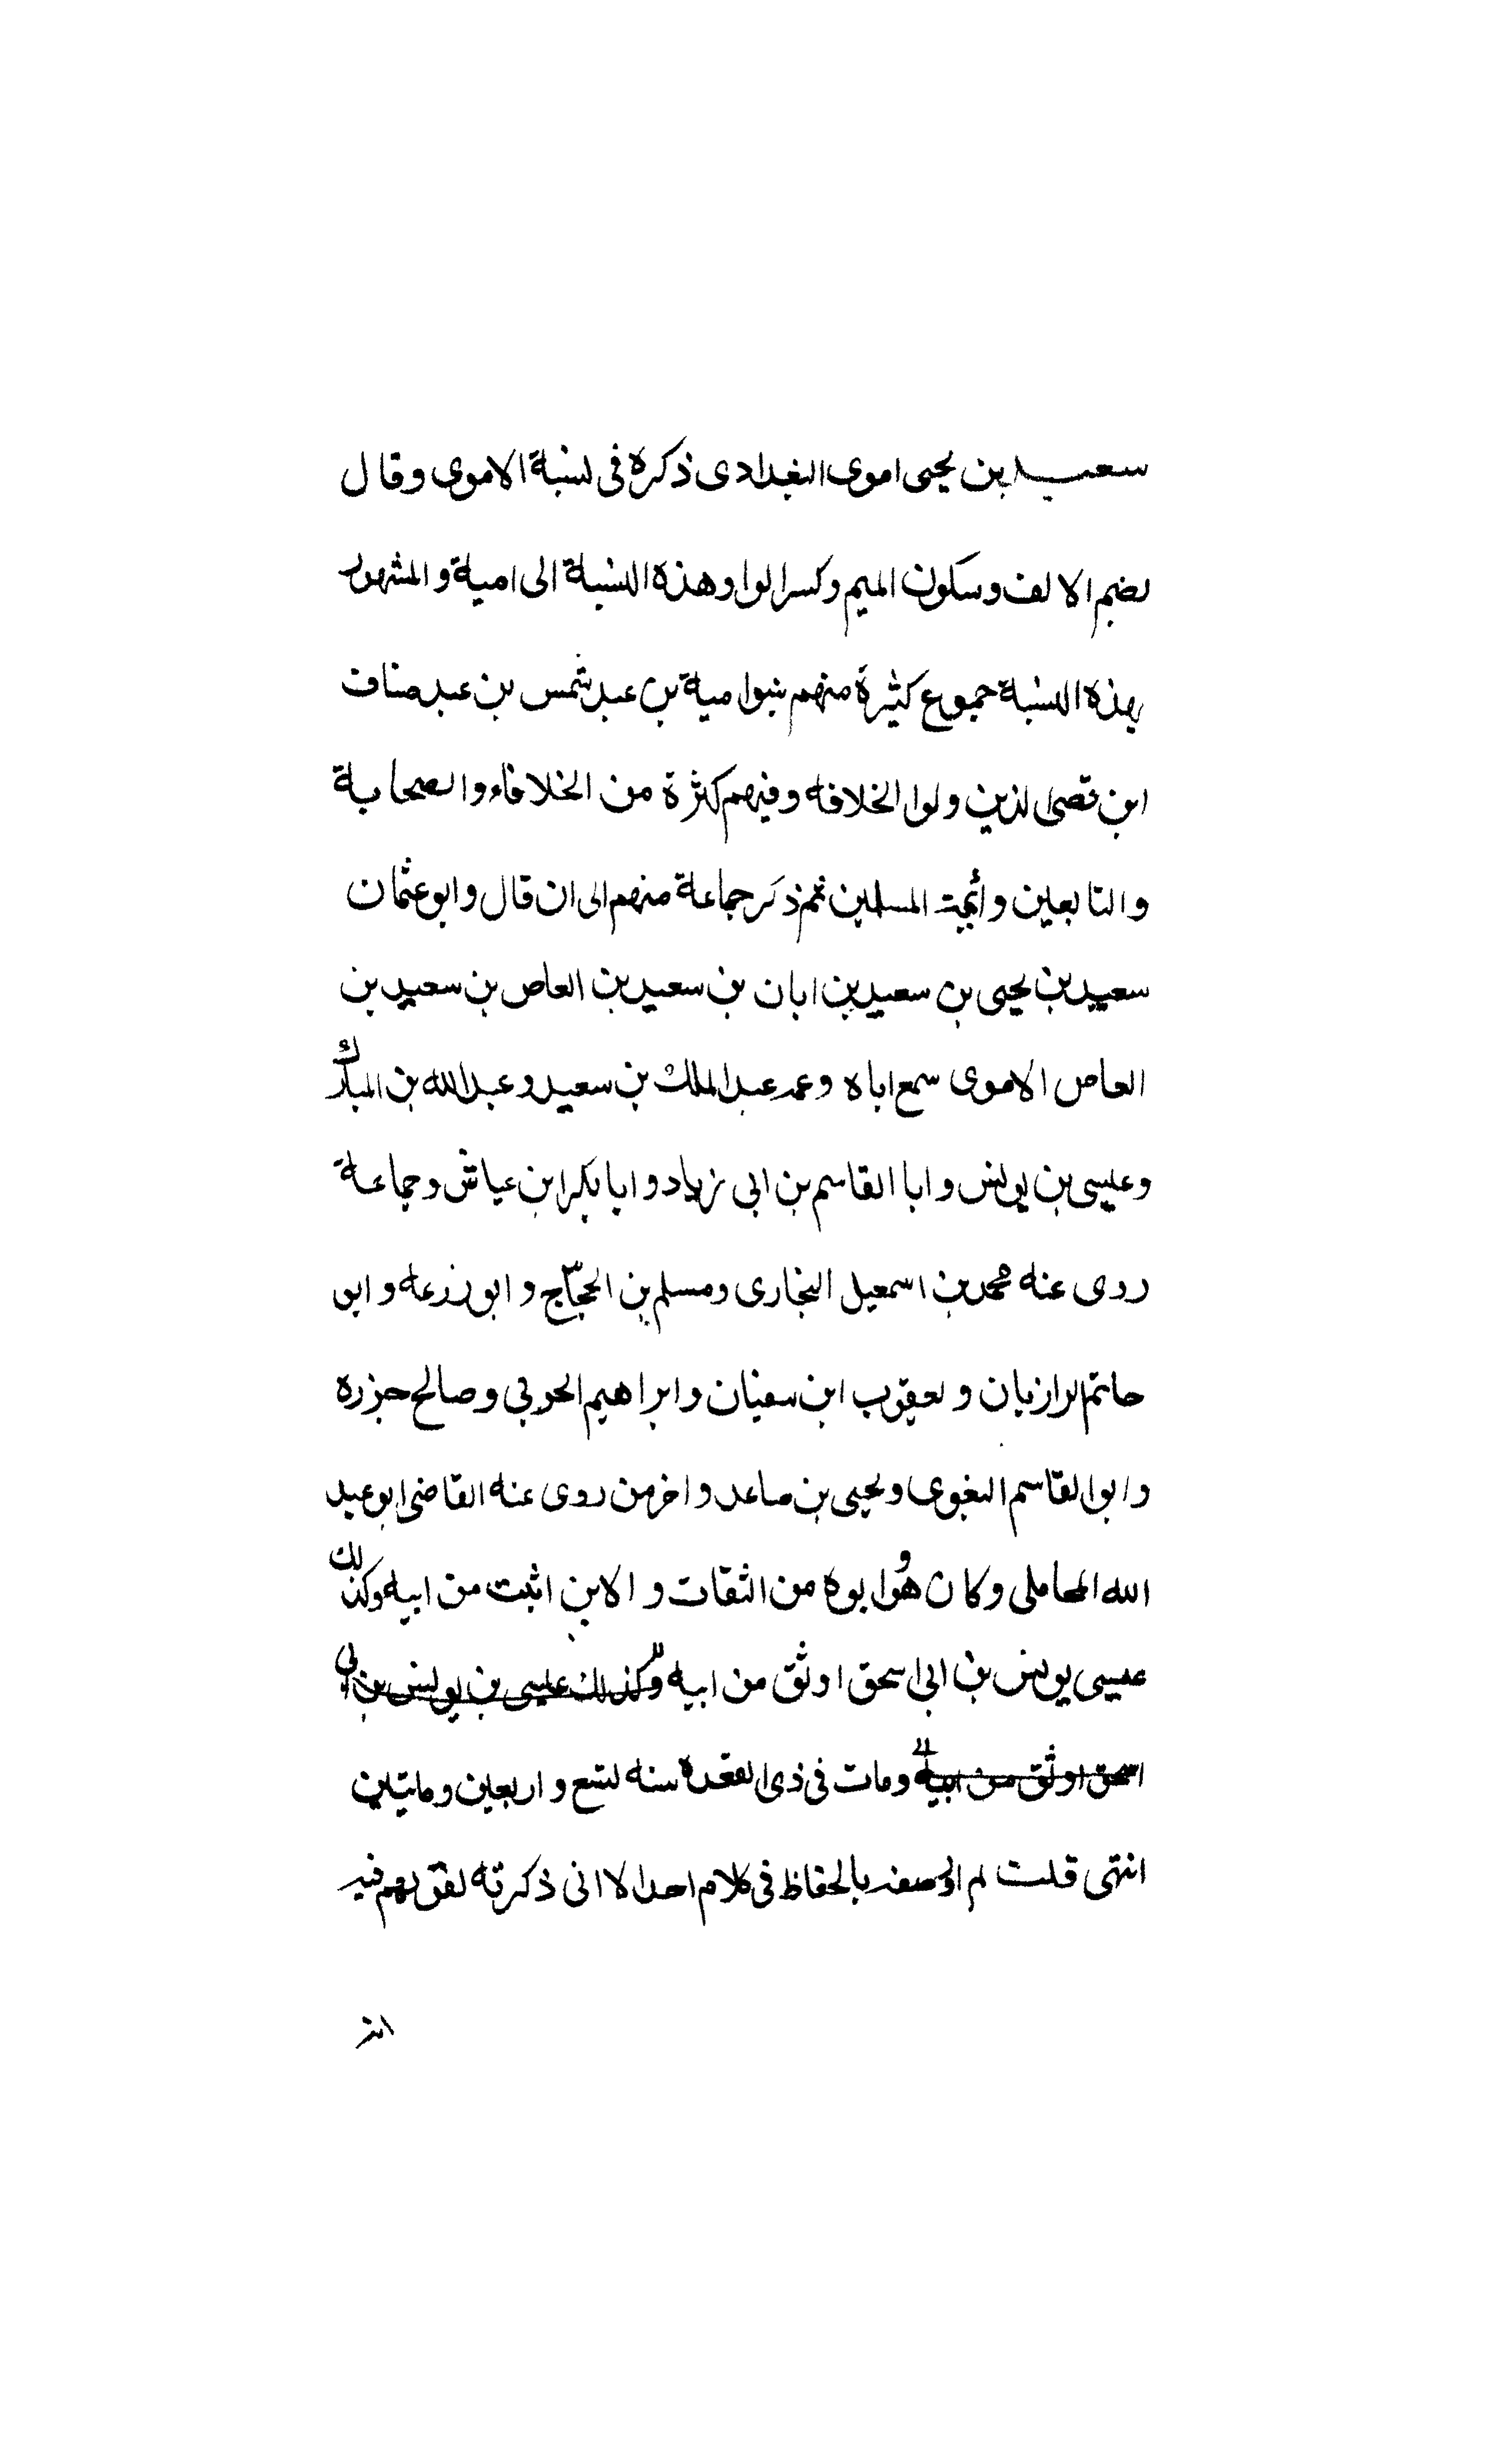 سعيد بن يحيى اموى البغدادى ذكره فى نسبة الاموى وقال
بضم الالف وسكون الميم وكسر الواو هذه النسبة الى امية والمشهور
بهذه النسبة جموع كثيرة منهم بنوا مية بن عبد شمس بن عبد مناف
ابن قصى الذين ولوا الخلافه وفيهم كثرة من الخلافاء والصحابة
والتابعين وأئمة المسلمين ثم ذكر جماعة منهم الى ان قال وابو عثمان
سعيد بن يحيى بن سعيد بن ابان بن سعيد بن العاص بن سعيد بن
العاص الاموى سمع اباه وعمه عبد الملك بن سعيد وعبد الله بن المبارك
وعيسى بن يونس وابا القاسم بن ابى زياد وابا بكر ابن عياش وجماعة
روى عنه محمد بن اسمعيل البخارى ومسلم بن الحجاج وابو زرعه وابو
حاتم الرازيان ويعقوب ابن سفيان وابراهيم الحربي وصالح جزره
وابو القاسم البغوى ويحيى بن صاعد واخر من روى عنه القاضى ابو عبد
الله المحاملى وكان هو وابوه من الثقات والابن اثبت من ابيه وكذلك
عيسى يونس بن ابى اسحق اوثق من ابيه وكذلك عيسى بن يونس بن ابى
اسحق اوثق من ابيه ومات فى ذى القعده سنه تسع واربعين وماتيين
انتهى قلت لم الوصفه بالحفاظ فى كلام احد الا انى ذكرته لقولهم فيه